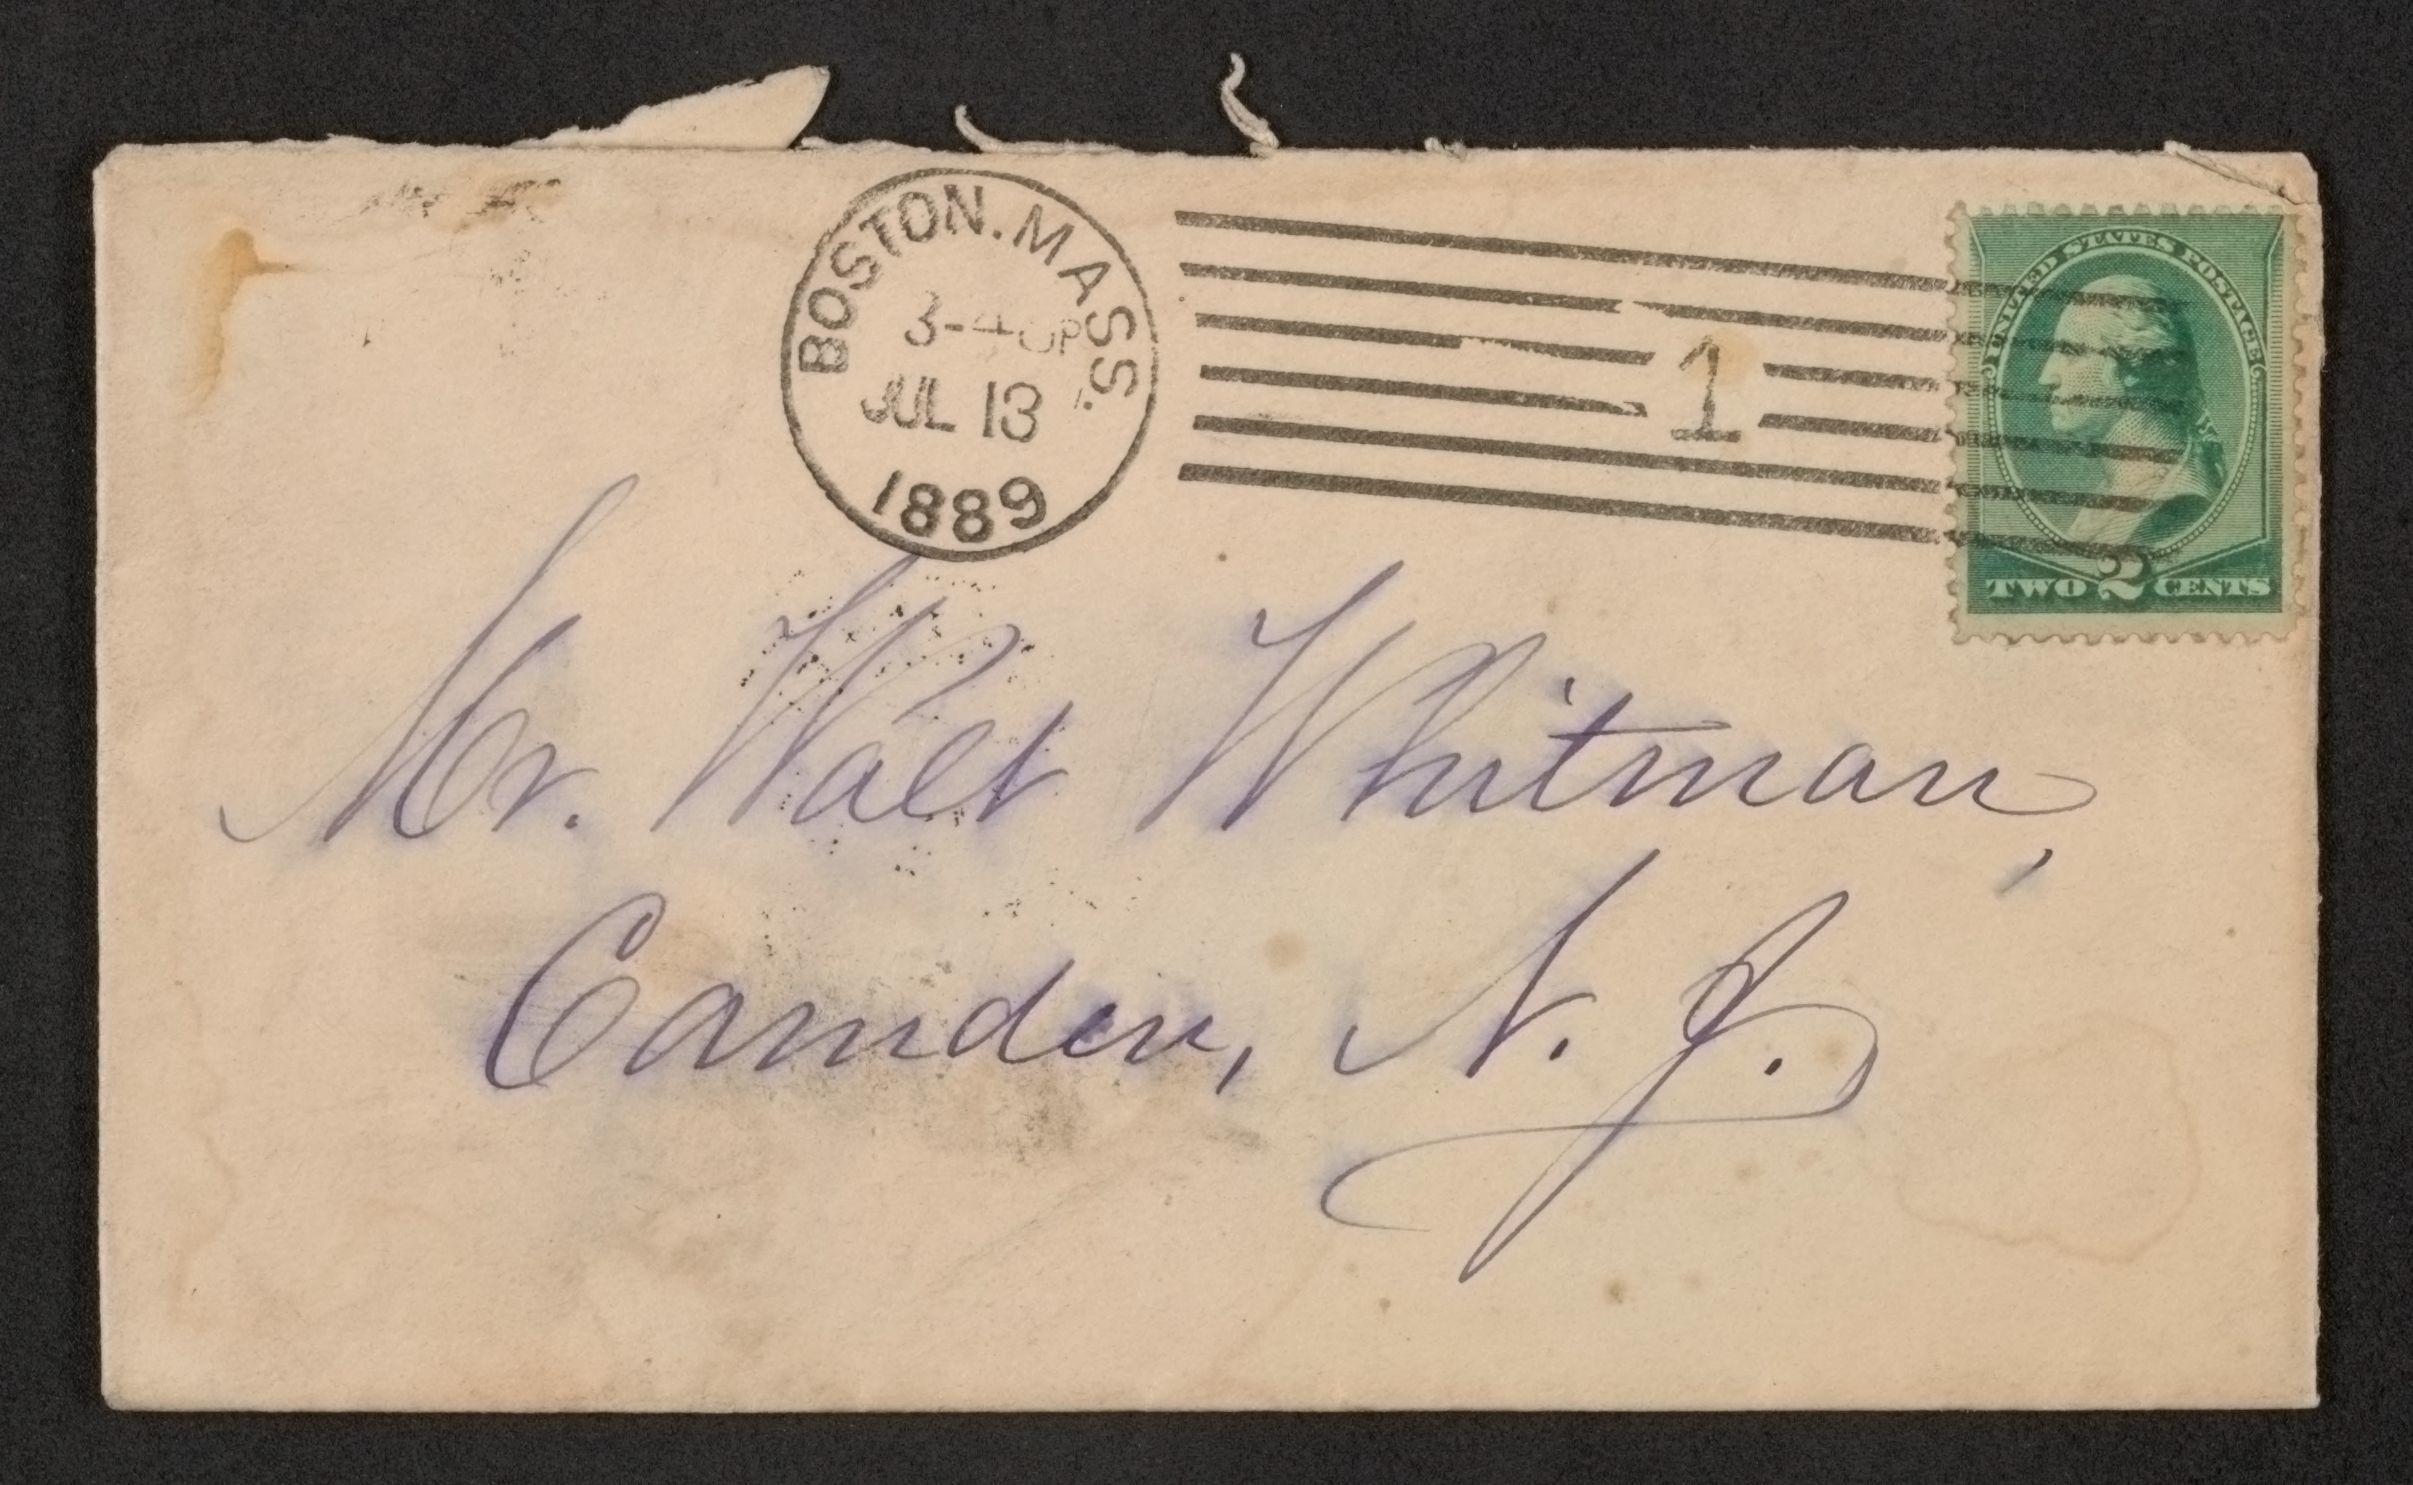 BOSTON. MASS.
3-4
JUL 13
1889
1
UNITED STATES POSTAGE
TWO 2 CENTS
Mr. Walt Whitman,
Camden, N. J.